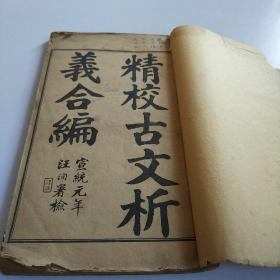 精校古文析
義合編
宣統元年
汪洵署檢